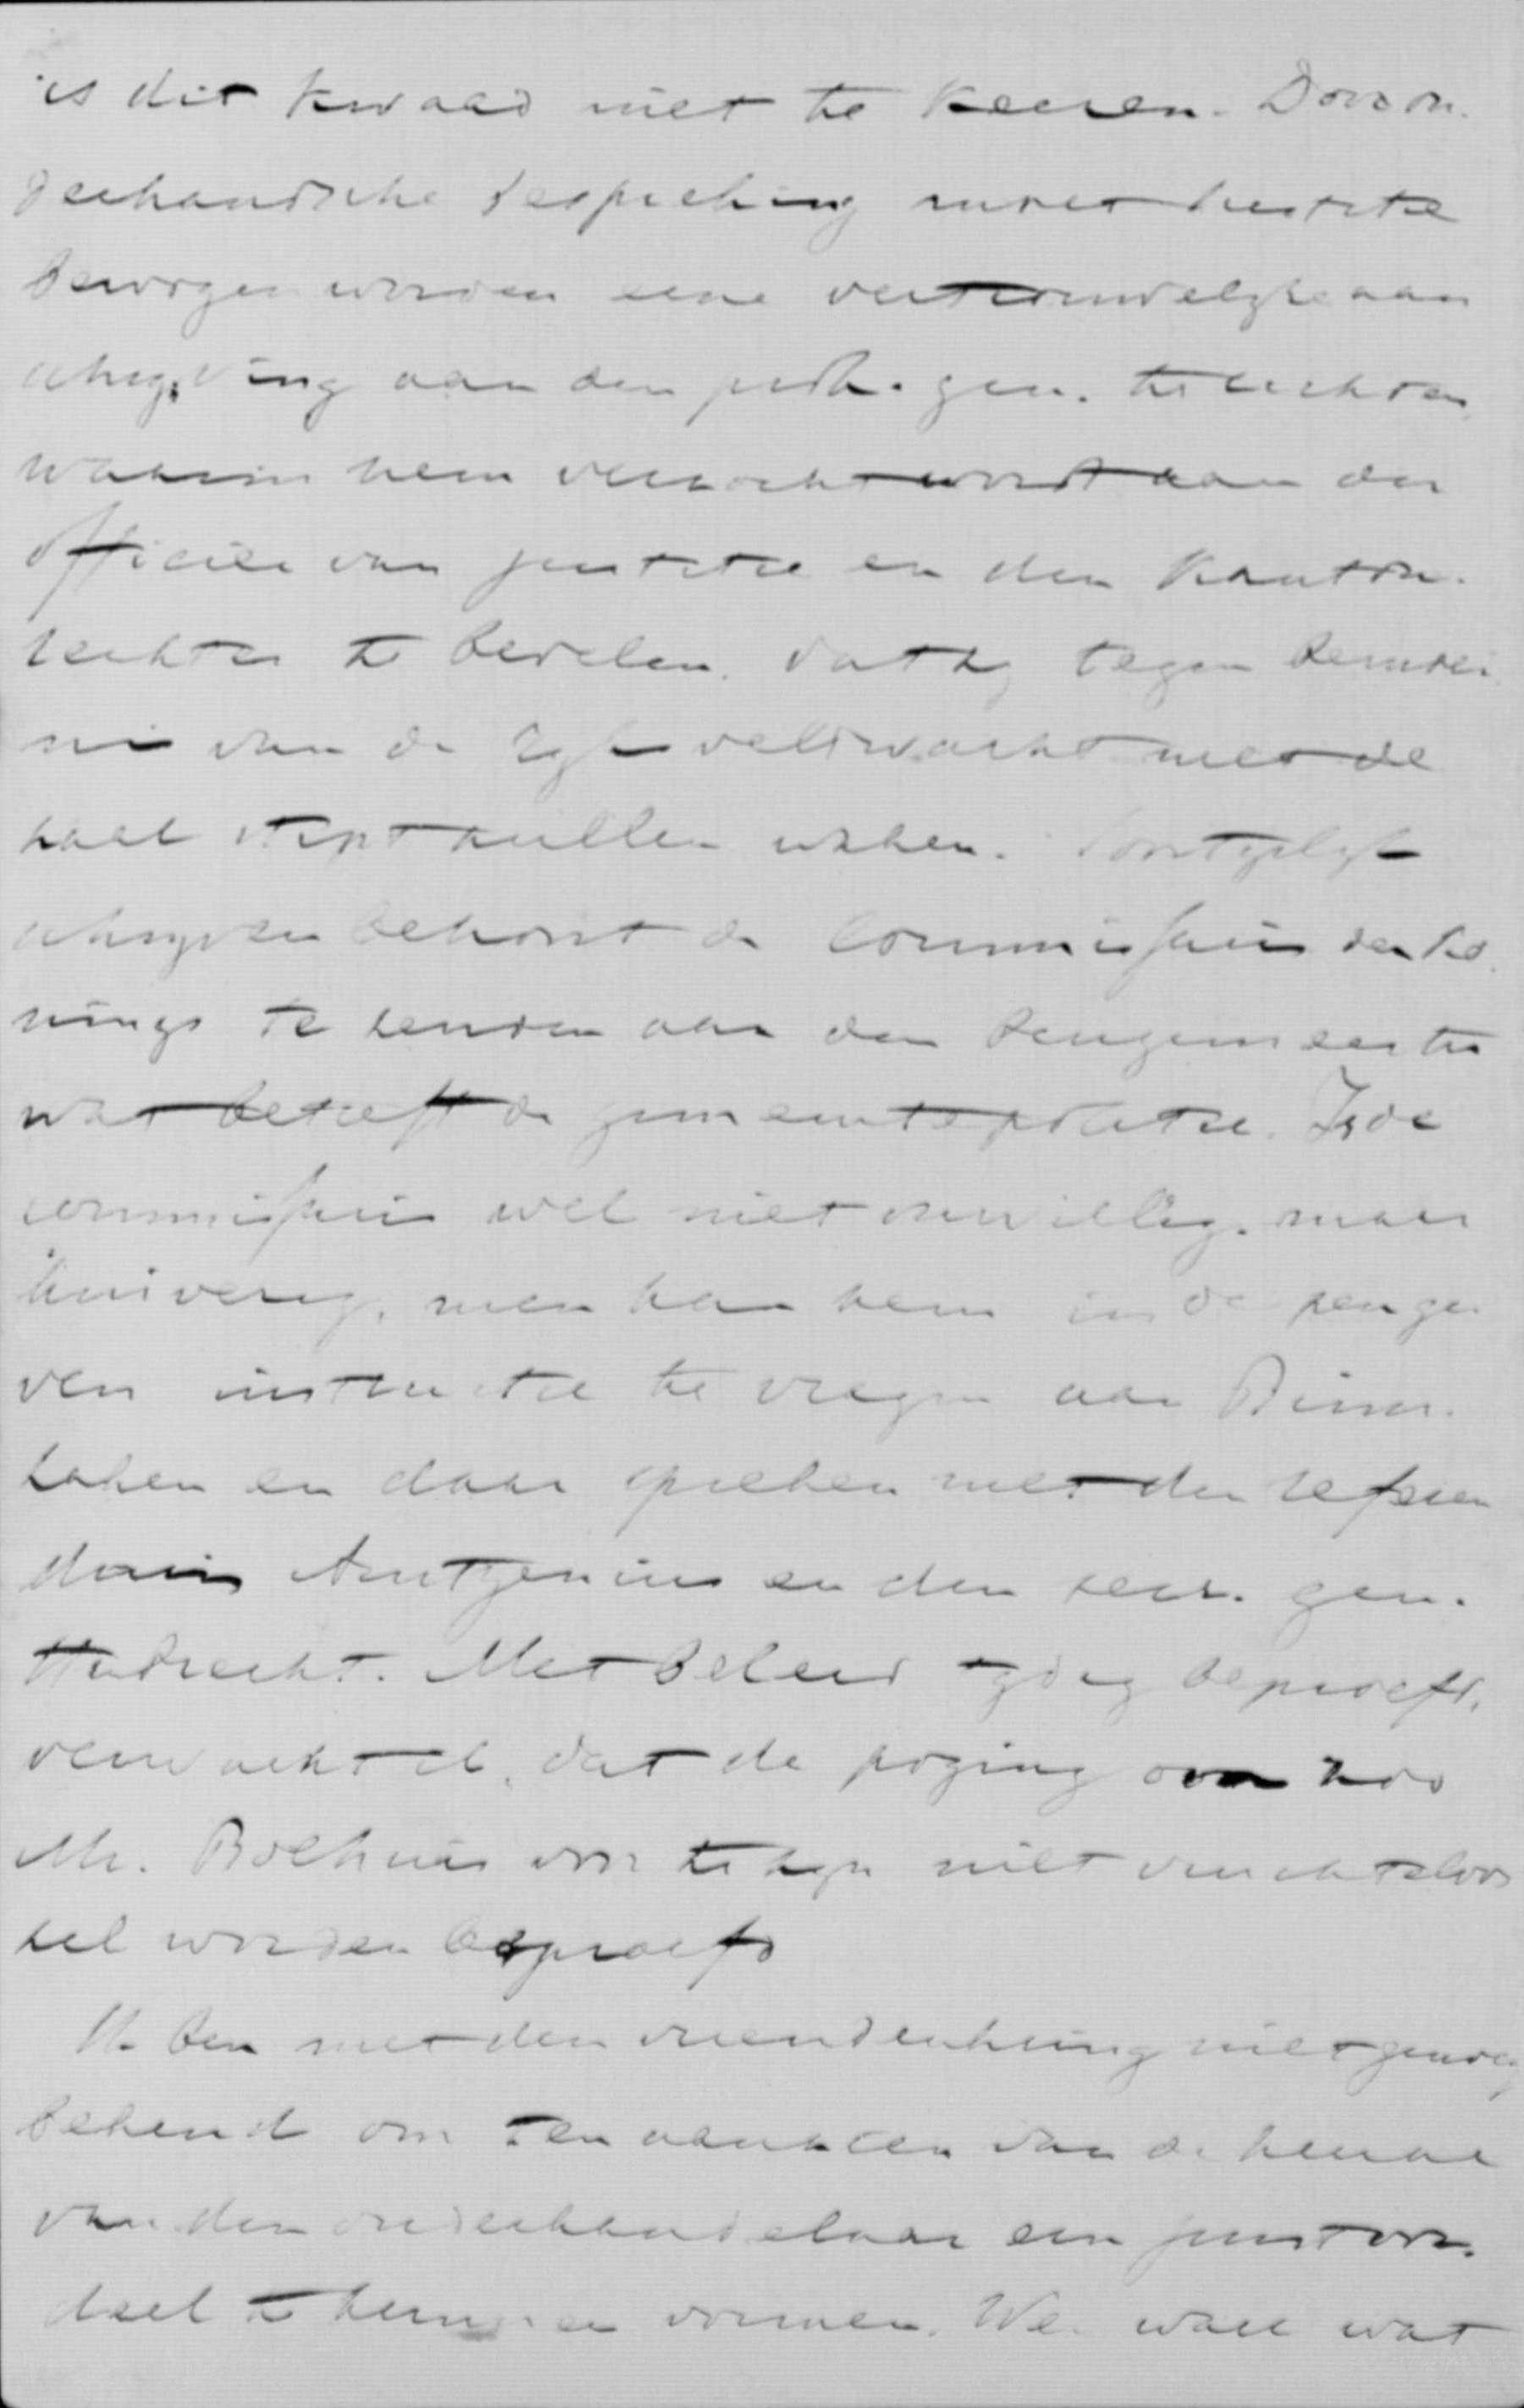 is dit kwaad niet te keeren. Door on-
derhandsche bespreking moet
bewogen worden eene vertrouwelijke aan
schrijving aan den proc. gen. te richten
waarin hem verzocht wordt aan den
officier van justitie en den Kanton-
rechter te bevelen, dat zij tegen bemoei
nis van de rijksveldwacht met de
zaak stipt zullen waken. Soortgelijk
schrijven behoort de Commissaris der Ko-
nings te zenden aan den burgemeester
wat betreft de gemeentepolitie. Is de
commissaris wel niet onwillig, maar
huiverig, men kan hem in de pen ge
ven instructie te vragen aan Binnl.
zaken en daar spreken met den referen
daris Arntzenius en den secr. gen.
Met beleid tijdig beproefd,
verwacht ik, dat de poging om zoo
Mr. Bolhuis voor te zijn niet vruchteloos
zal worden beproefd
Ik ben met den vriendenkring niet genoeg
bekend om ten aanzien van de keuze
van den onderhandelaar een juist oor-
deel te kunnen vormen. We waar wat